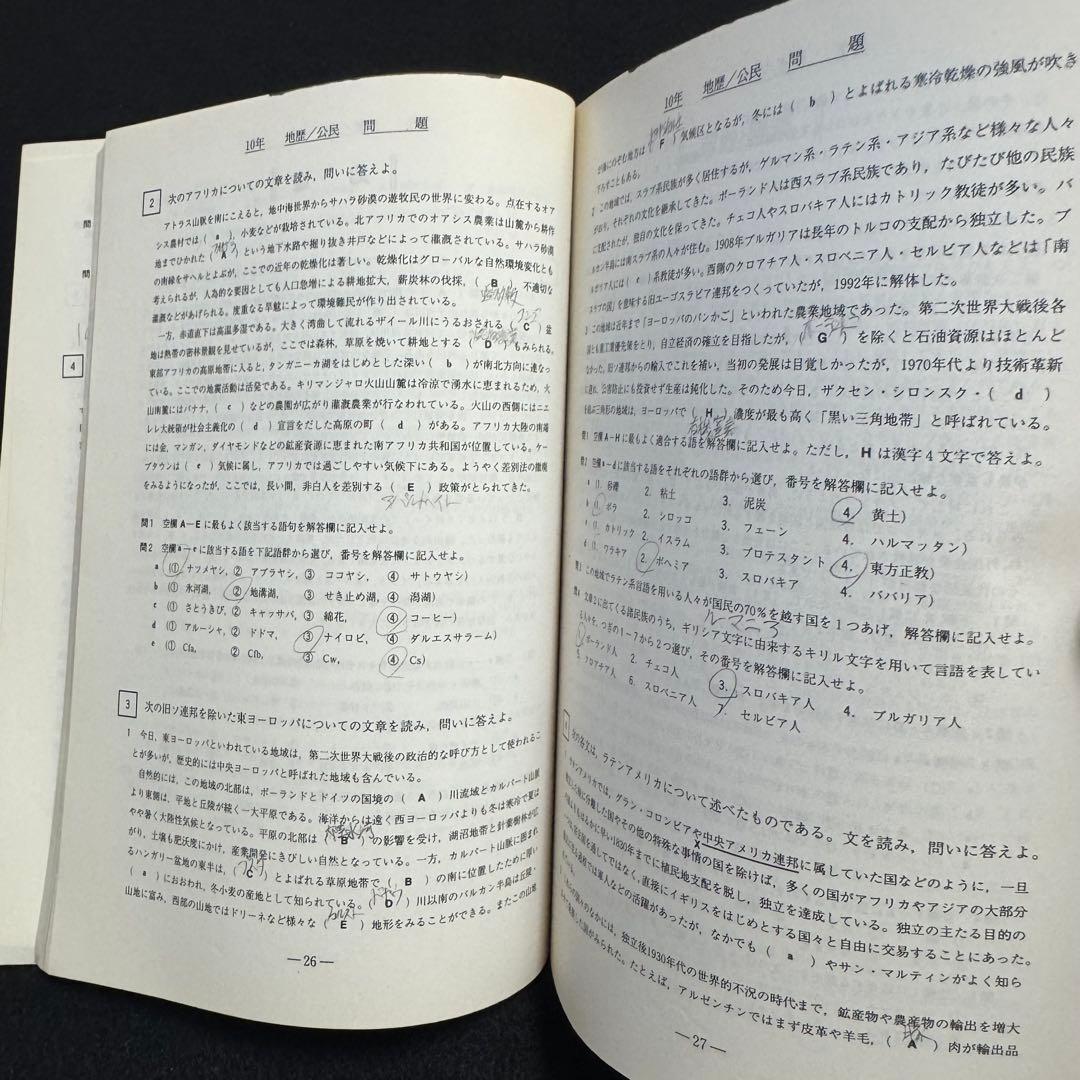 10年 地歴/公民 問 題
2 次のアフリカについての文章を読み，問いに答えよ。
アトラス山脈を南にこえると，地中海世界からサハラ砂漠の遊牧民の世界に変わる。点在するオア
シス農村では（ a ），小麦などが栽培されている。北アフリカでのオアシス農業は山麓から耕作
地までひかれた（ A ）という地下水路や掘り抜き井戸などによって灌漑されている。サハラ砂漠
の南縁をサヘルとよぶが，ここでの近年の乾燥化は著しい。乾燥化はグローバルな自然環境変化とも
考えられるが，人為的な要因としても人口急増による耕地拡大，薪炭林の伐採，（ B ）不適切な
灌漑などがあげられる。度重なる旱魃によって環境難民が作り出されている。
一方，赤道直下は高温多湿である。大きく湾曲して流れるザイール川にうるおされる（ C ）盆
地は熱帯の密林景観を見せているが，ここでは森林，草原を焼いて耕地とする（ D ）もみられる。
東部アフリカの高原地帯に入ると，タンガニーカ湖をはじめとした深い（ b ）が南北方向に連なっ
ている。ここの地震活動は活発である。キリマンジャロ火山山麓は冷涼で湧水に恵まれるため，火
山南麓にはバナナ，（ c ）などの農園が広がり灌漑農業が行なわれている。火山の西側にはニエ
レレ大統領が社会主義化の（ d ）宣言をだした高原の町（ d ）がある。アフリカ大陸の南端
には金，マンガン，ダイヤモンドなどの鉱産資源に恵まれた南アフリカ共和国が位置している。ケー
プタウンは（ e ）気候に属し，アフリカでは過ごしやすい気候下にある。ようやく差別法の撤廃
をみるようになったが，ここでは，長い間，非白人を差別する（ E ）政策がとられてきた。
アパルトヘイト
問1 空欄A－Eに最もよく該当する語句を解答欄に記入せよ。
問2 空欄a－eに該当する語を下記語群から選び，番号を解答欄に記入せよ。
a (① ナツメヤシ， ② アブラヤシ， ③ ココヤシ， ④ サトウヤシ)
b (① 氷河湖， ② 地溝湖， ③ せき止め湖， ④ 潟湖)
c (① さとうきび，② キャッサバ，③ 綿花， ④ コーヒー)
d (① アルーシャ，② ドドマ， ③ ナイロビ， ④ ダルエスサラーム)
e (① Cfa， ② Cfb， ③ Cw， ④ Cs)
3 次の旧ソ連邦を除いた東ヨーロッパについての文章を読み，問いに答えよ。
1 今日，東ヨーロッパといわれている地域は，第二次世界大戦後の政治的な呼び方として使われるこ
とが多いが，歴史的には中央ヨーロッパと呼ばれた地域も含んでいる。
自然的には，この地域の北部は，ポーランドとドイツの国境の（ A ）川流域とカルパート山脈
より東側は，平地と丘陵が続く一大平原である。海洋からは遠く西ヨーロッパよりも冬は寒冷で夏は
やや暑く大陸性気候となっている。平原の北部は（ B ）の影響を受け，湖沼地帯と針葉樹林が広
がり，土壌も肥沃度にかけ，産業開発にきびしい自然となっている。一方，カルパート山脈に囲まれ
るハンガリー盆地の東半は，（ C ）とよばれる草原地帯で（ B ）の南に位置したために厚い
（ a ）におおわれ，冬小麦の産地として知られている。（ D ）川以南のバルカン半島は丘陵・
山地に富み，西部の山地ではドリーネなど様々な（ E ）地形をみることができる。またこの山地
―26―
問
問
4
10年 地歴/公民 問 題
にのぞむ地方は（ F ）気候区となるが，冬には（ b ）とよばれる寒冷乾燥の強風が吹き
下ろすこともある。
2 この地域では，スラブ系民族が多く居住するが，ゲルマン系・ラテン系・アジア系など様々な人々
がおり，それぞれの文化を継承してきた。ポーランド人は西スラブ系民族であり，たびたび他の民族
に支配されたが，独自の文化を保ってきた。チェコ人やスロバキア人にはカトリック教徒が多い。バ
ルカン半島には南スラブ系の人々が住む。1908年ブルガリアは長年のトルコの支配から独立した。ブ
ルガリア人には（ c ）系教徒が多い。西側のクロアチア人・スロベニア人・セルビア人などは「南
スラブの国」を意味する旧ユーゴスラビア連邦をつくっていたが，1992年に解体した。
3 この地域は近年まで「ヨーロッパのパンかご」といわれた農業地域であった。第二次世界大戦後各
国とも重工業優先策をとり，自立経済の確立を目指したが，（ G ）を除くと石油資源はほとんど
なかった。旧ソ連邦からの輸入でこれを補い，当初の発展は目覚しかったが，1970年代より技術革新
に遅れ，公害防止にも投資せず生産は鈍化した。そのため今日，ザクセン・シロンスク・（ d ）
を結ぶ三角形の地域は，ヨーロッパで（ H ）濃度が最も高く「黒い三角地帯」と呼ばれている。
問1 空欄A－Hに最もよく適合する語を解答欄に記入せよ。ただし，Hは漢字4文字で答えよ。
問2 空欄a－dに該当する語をそれぞれの語群から選び，番号を解答欄に記入せよ。
a (1. 砂礫 2. 粘土 3. 泥炭 4. 黄土)
b (1. ボラ 2. シロッコ 3. フェーン 4. ハルマッタン)
c (1. カトリック 2. イスラム 3. プロテスタント 4. 東方正教)
d (1. ワラキア 2. ボヘミア 3. スロバキア 4. ババリア)
問3 この地域でラテン系言語を用いる人々が国民の70％を越す国を1つあげ，解答欄に記入せよ。
ルーマニア
問4 文章2に出てくる諸民族のうち，ギリシア文字に由来するキリル文字を用いて言語を表してい
る人々を，つぎの1－7から2つ選び，その番号を解答欄に記入せよ。
1. ポーランド人 2. チェコ人 3. スロバキア人 4. ブルガリア人
5. クロアチア人 6. スロベニア人 7. セルビア人
次の各文は，ラテンアメリカについて述べたものである。文を読み，問いに答えよ。
ラテンアメリカでは，グラン・コロンビアや中央アメリカ連邦に属していた国などのように，一旦
独立した後に分離した国やその他の特殊な事情の国を除けば，多くの国がアフリカやアジアの大部分
の国よりもはるかに早い1830年までに植民地支配を脱し，独立を達成している。独立の主たる目的の
一つは，宗主国を通してではなく，直接にイギリスをはじめとする国々と自由に交易することにあった。
独立の過程では軍人などの活躍があったが，なかでも（ a ）やサン・マルティンがよく知ら
れている。
これらの国々のなかには，独立後1930年代の世界的不況の時代まで，鉱産物や農産物の輸出を増大
させて発展した国がみられた。たとえば，アルゼンチンではまず皮革や羊毛，（ A ）肉が輸出品
―27―